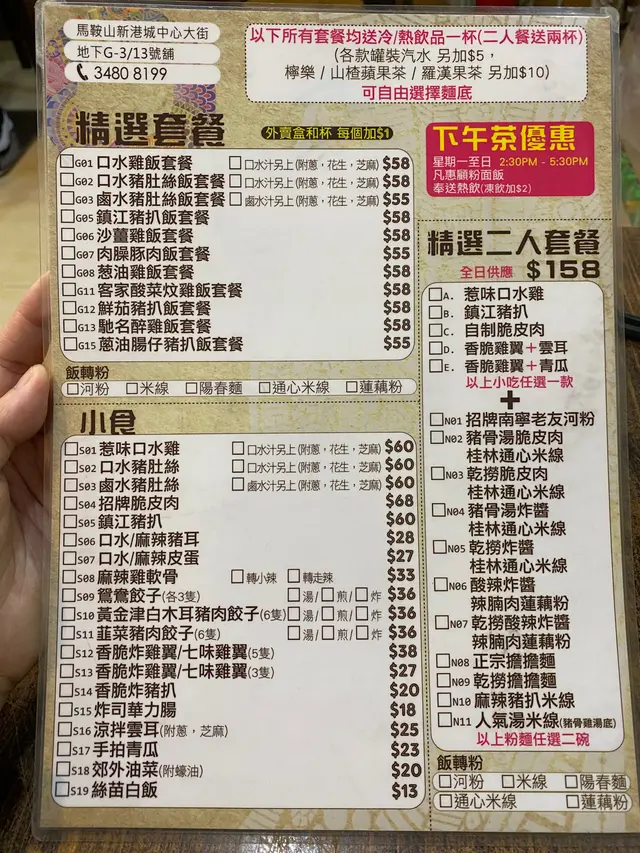 馬鞍山新港城中心大街
地下G-3/13號舖
3480 8199
以下所有套餐均送冷/熱飲品一杯(二人餐送兩杯)
(各款罐裝汽水 另加$5,
檸樂 / 山楂蘋果茶 / 羅漢果茶 另加$10)
可自由選擇麵底
精選套餐
外賣盒和杯 每個加$1
G01 口水雞飯套餐 口水汁另上(附蔥,花生,芝麻) $58
G02 口水豬肚絲飯套餐 口水汁另上(附蔥,花生,芝麻) $58
G03 鹵水豬肚絲飯套餐 鹵水汁另上(附蔥,花生,芝麻) $55
G05 鎮江豬扒飯套餐 $58
G06 沙薑雞飯套餐 $58
G07 肉臊豚肉飯套餐 $55
G08 葱油雞飯套餐 $58
G11 客家酸菜炆雞飯套餐 $58
G12 鮮茄豬扒飯套餐 $58
G13 馳名醉雞飯套餐 $58
G15 蔥油腸仔豬扒飯套餐 $55
飯轉粉
河粉 米線 陽春麵 通心米線 蓮藕粉
小食
S01 惹味口水雞 口水汁另上(附蔥,花生,芝麻) $60
S02 口水豬肚絲 口水汁另上(附蔥,花生,芝麻) $60
S03 鹵水豬肚絲 鹵水汁另上(附蔥,花生,芝麻) $60
S04 招牌脆皮肉 $68
S05 鎮江豬扒 $60
S06 口水/麻辣豬耳 $28
S07 口水/麻辣皮蛋 $27
S08 麻辣雞軟骨 轉小辣 轉走辣 $33
S09 鴛鴦餃子(各3隻) 湯/ 煎/ 炸 $36
S10 黃金津白木耳豬肉餃子(6隻) 湯/ 煎/ 炸 $36
S11 韮菜豬肉餃子(6隻) 湯/ 煎/ 炸 $36
S12 香脆炸雞翼/七味雞翼(5隻) $38
S13 香脆炸雞翼/七味雞翼(3隻) $27
S14 香脆炸豬扒 $20
S15 炸司華力腸 $18
S16 涼拌雲耳(附蔥,芝麻) $25
S17 手拍青瓜 $23
S18 郊外油菜(附蠔油) $20
S19 絲苗白飯 $13
下午茶優惠
星期一至日 2:30PM - 5:30PM
凡惠顧粉面飯
奉送熱飲(凍飲加$2)
精選二人套餐
全日供應 $158
A. 惹味口水雞
B. 鎮江豬扒
C. 自制脆皮肉
D. 香脆雞翼+雲耳
E. 香脆雞翼+青瓜
以上小吃任選一款
+
N01 招牌南寧老友河粉
N02 豬骨湯脆皮肉
桂林通心米線
N03 乾撈脆皮肉
桂林通心米線
N04 豬骨湯炸醬
桂林通心米線
N05 乾撈炸醬
桂林通心米線
N06 酸辣炸醬
辣腩肉蓮藕粉
N07 乾撈酸辣炸醬
辣腩肉蓮藕粉
N08 正宗擔擔麵
N09 乾撈擔擔麵
N10 麻辣豬扒米線
N11 人氣湯米線(豬骨雞湯底)
以上粉麵任選二碗
飯轉粉
河粉 米線 陽春麵
通心米線 蓮藕粉